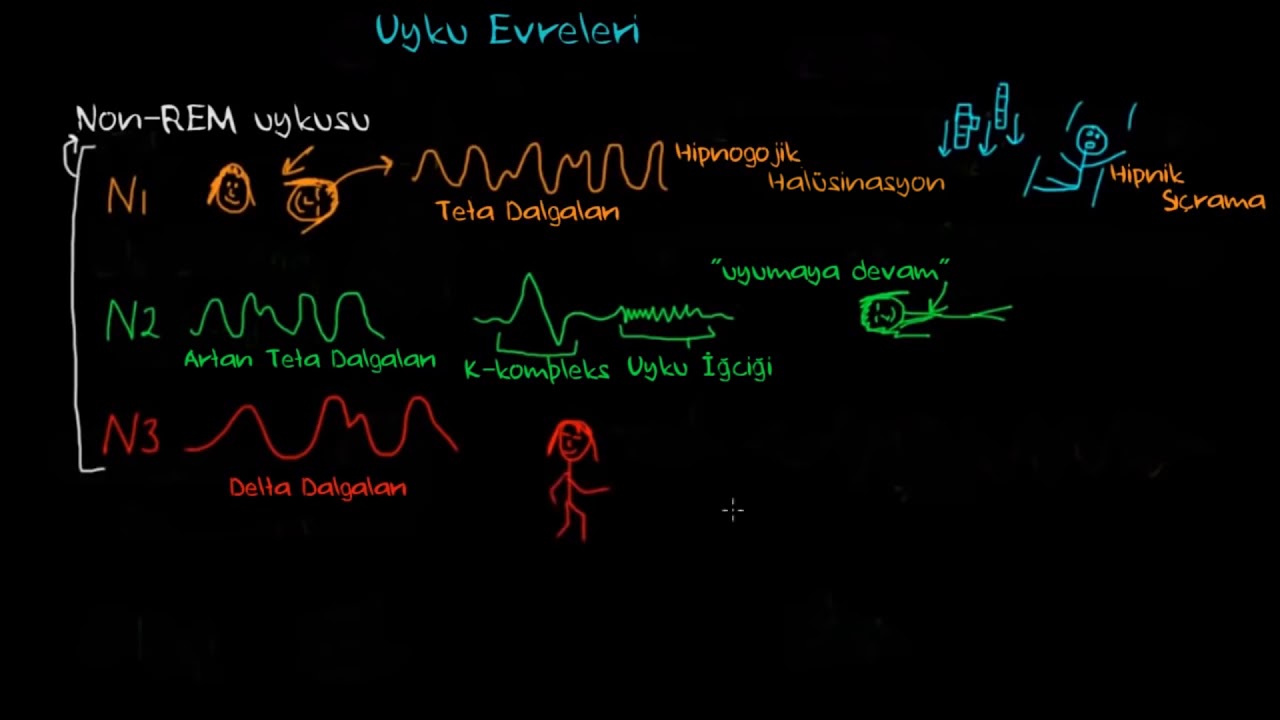 Uyku Evreleri
Non-REM uykusu
N1
Teta Dalgaları
Hipnogojik
Halüsinasyon
Hipnik
Sıçrama
N2
Artan Teta Dalgaları
K-kompleks
Uyku İğciği
"uyumaya devam"
N3
Delta Dalgaları